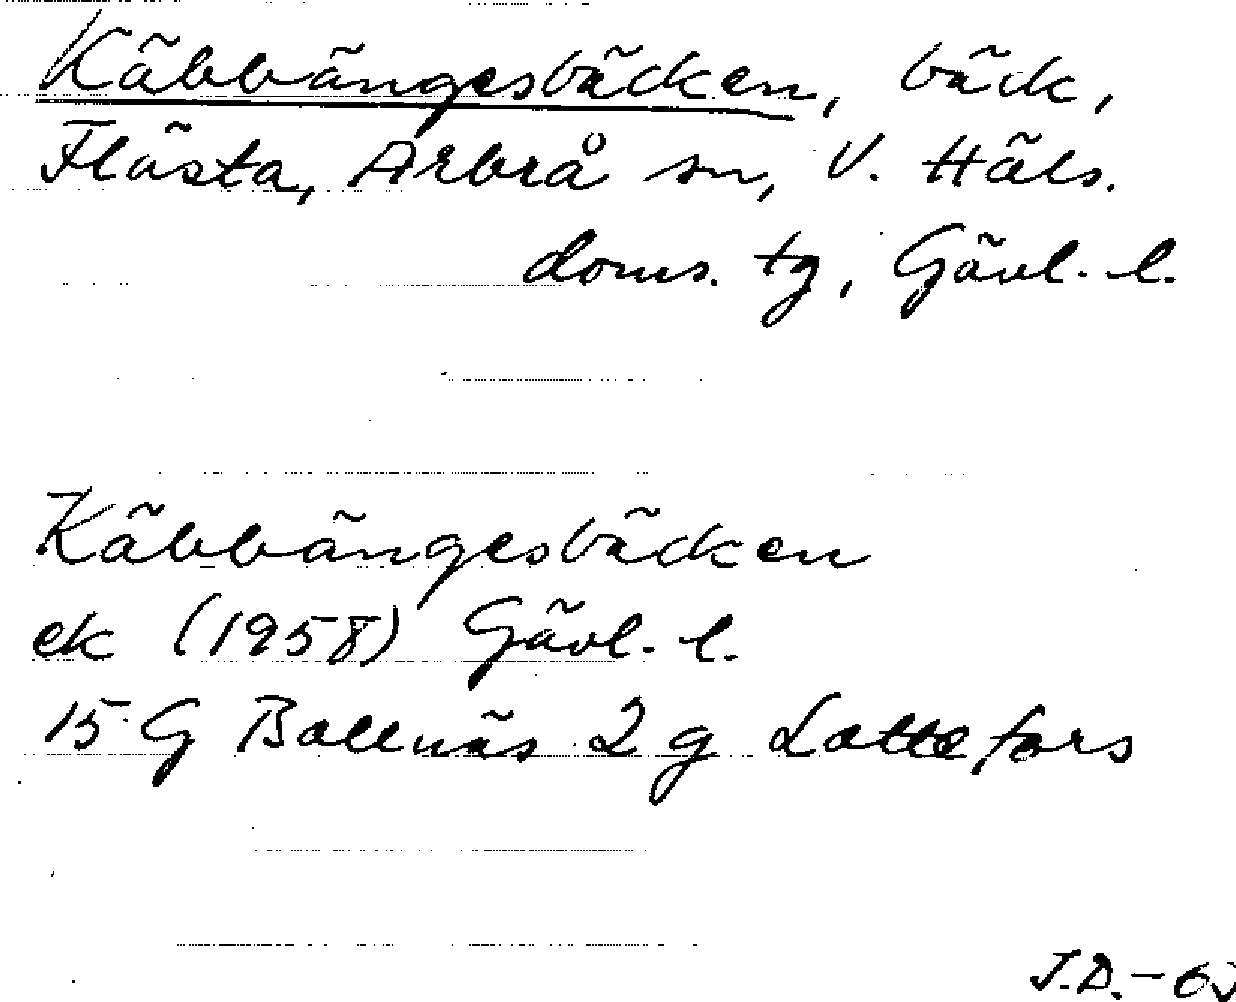 Käbbängesbäcken, bäck,
Flästa, Arbrå sn, V. Häls.
doms. tg, Gävl. l.
Käbbängesbäcken
ek (1958) Gävl. l.
15 G Bollnäs 2 g Lottefors
J.D.-